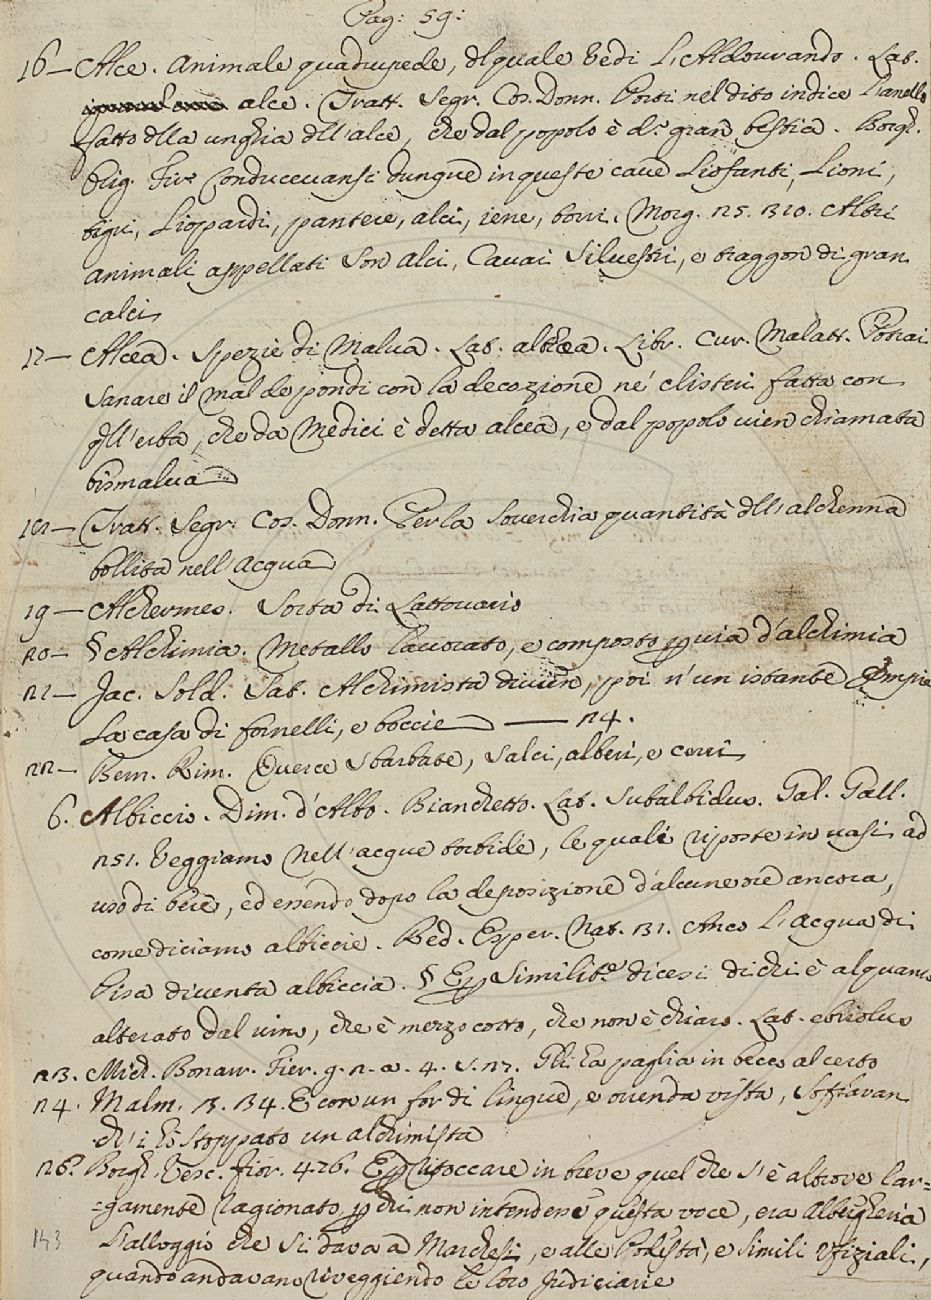 Pag: 59:
16 — Alce. Animale quadrupede, del quale vedi L'Aldovrando. Lat.
alce. Tratt. Segr. Cos. Donn. Porti nel dito indice l'anello
fatto dlla unghia dll'alce, che dal popolo è d.ª gran bestia. Borgh.
Orig. Fir. Conducevansi dunque in queste cave Liofanti, Lioni,
tigri, Liopardi, pantere, alci, iene, Morg. 25. 310. Altri
animali appellati son alci, Cavai Silvestri, e traggon di gran
calci
17 — Alcea. Spezie di Malva. Lat. alcea. Libr. Cur. Malatt. Potrai
sanare il mal de pondi con la decozione ne' clisteri fatta con
qll'erba, che da Medici è detta alcea, e dal popolo vien chiamata
bismalva
18 — Tratt. Segr. Cos. Donn. Per la soverchia quantità dll'alchenna
bollita nell'acqua
19 — Alchermes. Sorta di Lattovaro
20 — § Alchimia. Metallo lavorato, e composto p via d'alchimia
21 — Jac. Sold. Sat. Alchimista divien, poi n'un istante Empie
La casa di fornelli, e boccie — 24.
22 — Bern. Rim. Querce sbarbate, salci, alberi, e cerri
6. Albiccio. Dim. d'Albo. Bianchetto. Lat. Subalbidus. Gal. Gall.
251. Veggiamo nell'acque torbide, le quali riposte in vasi ad
uso di bere, ed essendo dopo la deposizione d'alcune ore ancora,
come diciamo albiccie. Red. Esper. Nat. 31. Anco L'acqua di
Pisa diventa albiccia. § E p similit.ᵉ dicesi di chi è alquanto
alterato dal vino, che è mezzo cotto, che non è chiaro. Lat. ebriolus
23. Mich. Bonarr. Fier. g. 2. a. 4. s. 17. Gli ta paglia in becco al certo
24. Malm. 3. 34. E con un for di lingue, e orrenda vista, Soffiavan
ch'i ho stoppato un alchimista
26. Borgh. Vesc. Fior. 426. E p ritoccare in breve quel che s'è altrove lar=
=gamente ragionato, p chi non intendene questa voce, era Albergheria
L'alloggio che si dava a Marchesi, e alle Podistà, e simili Ufiziali,
quando andavano riveggiendo le loro Judiciarie
143